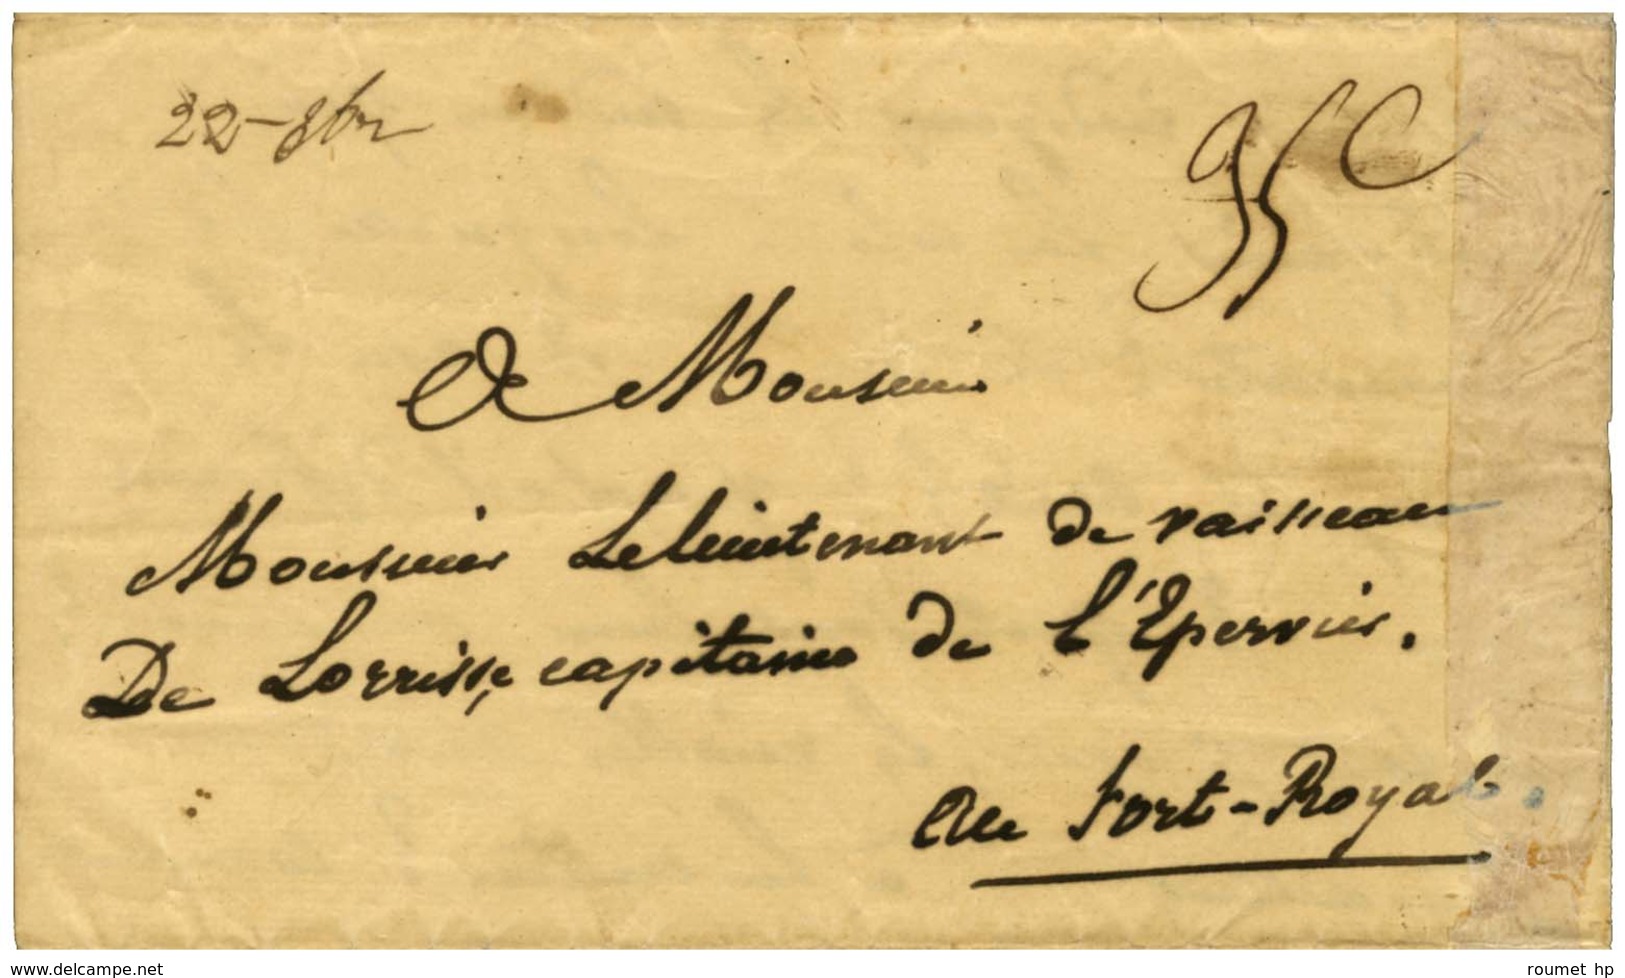 22-8br
35c
A Monsieur
Monsieur Le lieutenant de vaisseau
De Lorrisse, capitaine de l'Epervier.
Au Fort-Royal.
www.delcampe.net
roumet hp